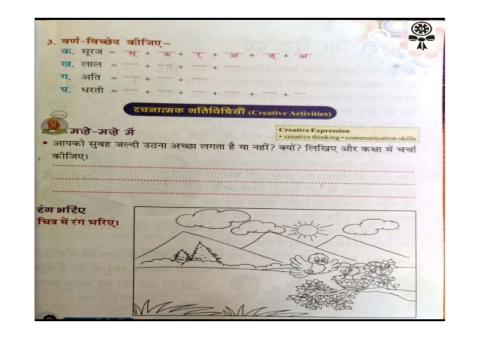 3. वर्ण-विच्छेद कीजिए–
क. सूरज = स् + ऊ + र् + अ + ज् + अ
ख. लाल = ...... + ...... + ...... + ......
ग. अति = ...... + ...... + ......
घ. धरती = ...... + ...... + ...... + ...... + ...... + ......
रचनात्मक गतिविधियाँ (Creative Activities)
मज़े-मज़े में
Creative Expression
• creative thinking • communication skills
• आपको सुबह जल्दी उठना अच्छा लगता है या नहीं? क्यों? लिखिए और कक्षा में चर्चा
कीजिए।
रंग भरिए
चित्र में रंग भरिए।